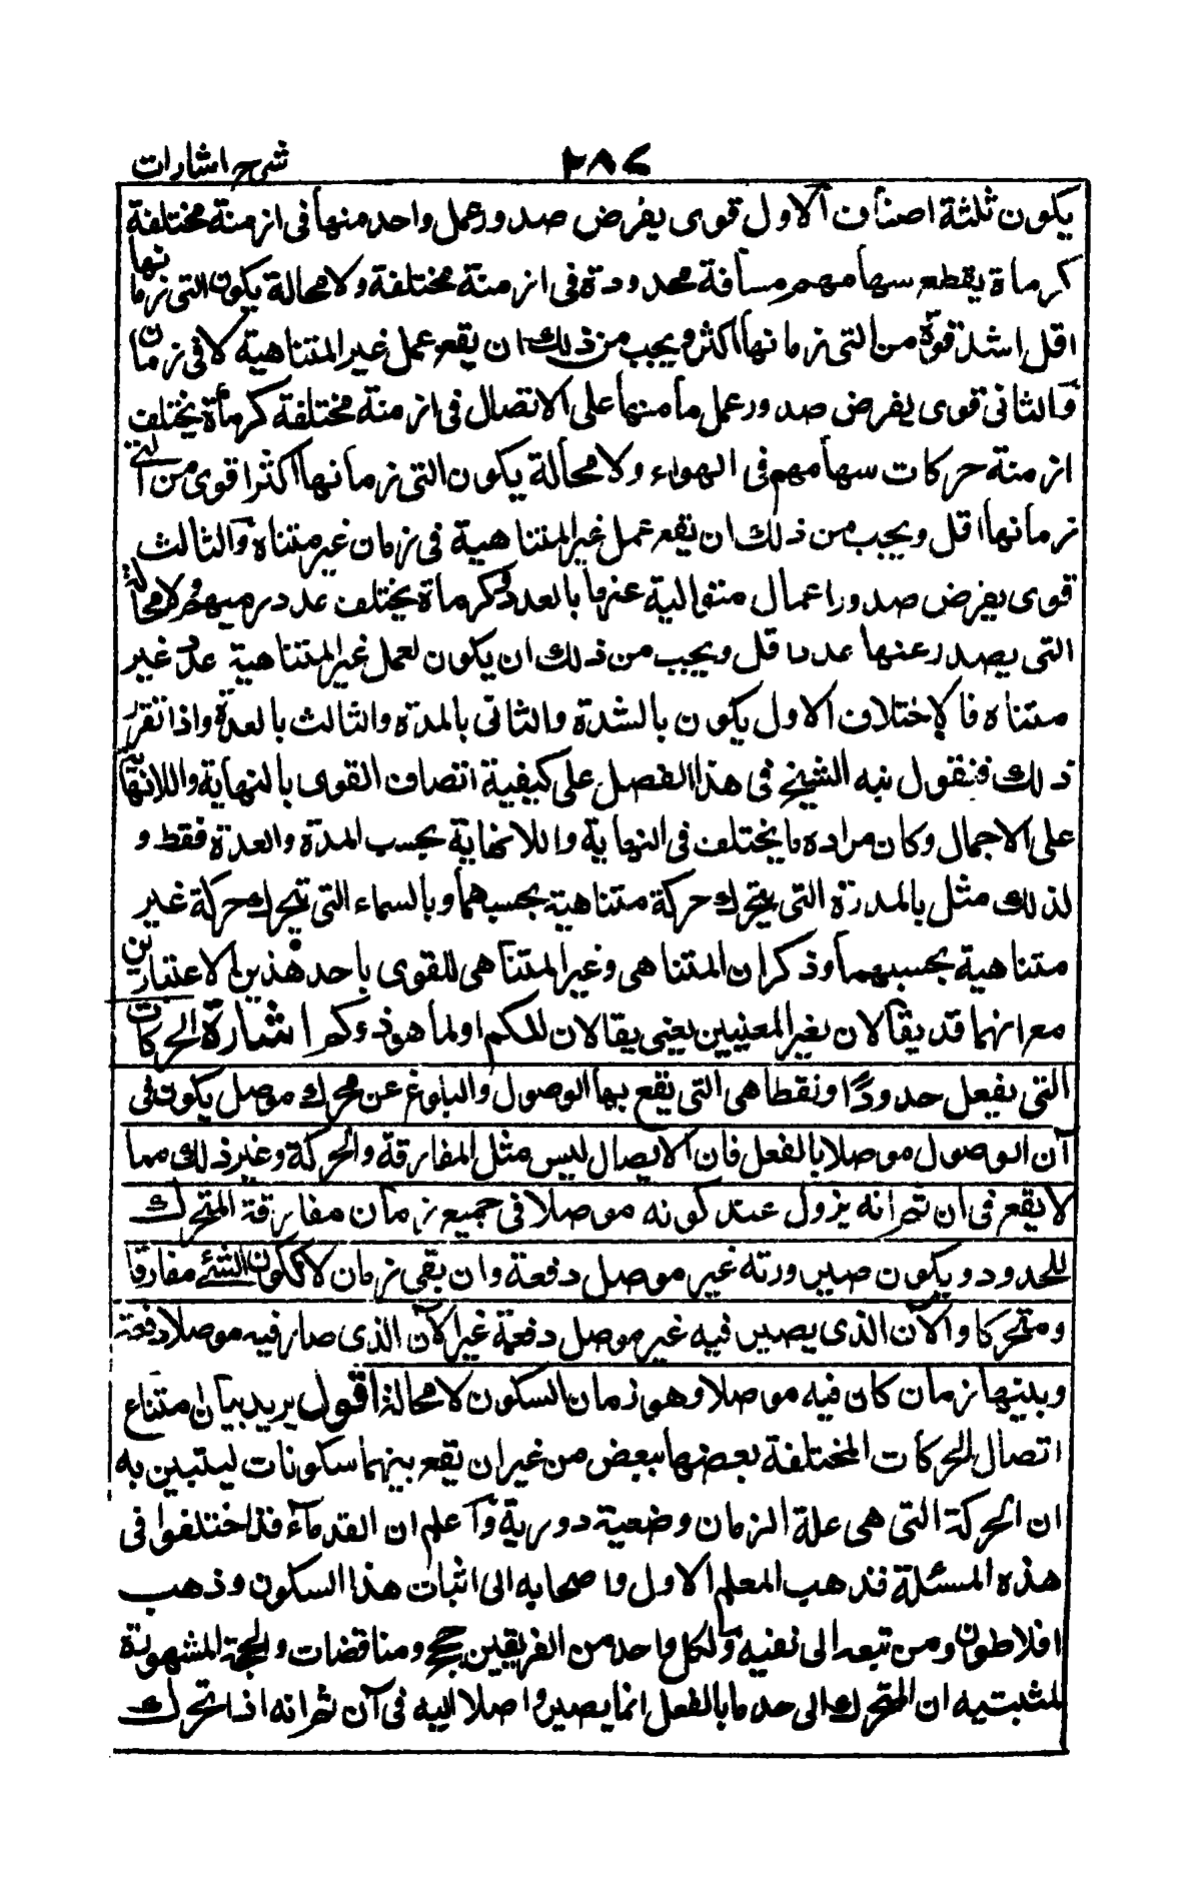 شرح اشارات ٢٨٧
يكون ثلثة اصناف الاول قوى يفرض صدور عمل واحد منها فى ازمنة مختلفة
كرماة يقطع سهامهم مسافة محدودة فى ازمنة مختلفة ولا محالة يكون التى زمانها
اقل اشد قوة من التى زمانها اكثر ويجب من ذلك ان يقع عمل غير المتناهية لا فى زمان
والثانى قوى يفرض صدور عمل ما منها على الاتصال فى ازمنة مختلفة كرماة يختلف
ازمنة حركات سهامهم فى الهواء ولا محالة يكون التى زمانها اكثر اقوى من التى
زمانها اقل ويجب من ذلك ان يقع عمل غير المتناهية فى زمان غير متناه والثالث
قوى يفرض صدور اعمال متوالية عنها بالعدد كرماة يختلف عدد رميهم ولا محالة
التى يصدر عنها عدد اقل ويجب من ذلك ان يكون لعمل غير المتناهية عدد غير
متناه فالاختلاف الاول يكون بالشدة والثانى بالمدة والثالث بالعدة واذا تقرر
ذلك فنقول نبه الشيخ فى هذا الفصل على كيفية اتصاف القوى بالنهاية واللانهاية
على الاجمال وكان مراده ما يختلف فى النهاية واللانهاية بحسب المدة والعدة فقط و
لذلك مثل بالمدرة التى يتحرك حركة متناهية بحسبهما وبالسماء التى تتحرك حركة غير
متناهية بحسبهما وذكر ان المتناهى وغير المتناهى للقوى باحد هذين الاعتبارين
مع انهما قد يقالان بغير المعنيين يعنى يقالان للكم او لما هو ذو كم اشارة الحركات
التى يفعل حدودًا ونقطا هى التى يقع بها الوصول والبلوغ عن محرك موصل يكون فى
آن الوصول موصلا بالفعل فان الايصال ليس مثل المفارقة والحركة وغير ذلك مما
لا يقع فى ان ثم انه يزول عند كونه موصلا فى جميع زمان مفارقة المتحرك
للحدود ويكون صيرورته غير موصل دفعة وان بقى زمان لا ككون الشئ مفارقا
ومتحركا والآن الذى يصير فيه غير موصل دفعة غير الآن الذى صار فيه موصلا دفعة
وبينهما زمان كان فيه موصلا وهو زمان السكون لا محالة اقول يريد بيان امتناع
اتصال الحركات المختلفة بعضها ببعض من غير ان يقع بينهما سكونات ليتبين به
ان الحركة التى هى علة الزمان وضعية دورية وآعلم ان القدماء قد اختلفوا فى
هذه المسئلة فذهب المعلم الاول واصحابه الى اثبات هذا السكون وذهب
افلاطون ومن تبعه الى نفيه ولكل واحد من الفريقين حجج ومناقضات والحجة المشهورة
لمثبتيه ان المتحرك الى حد ما بالفعل انما يصير واصلا اليه فى آن ثم انه اذا تحرك